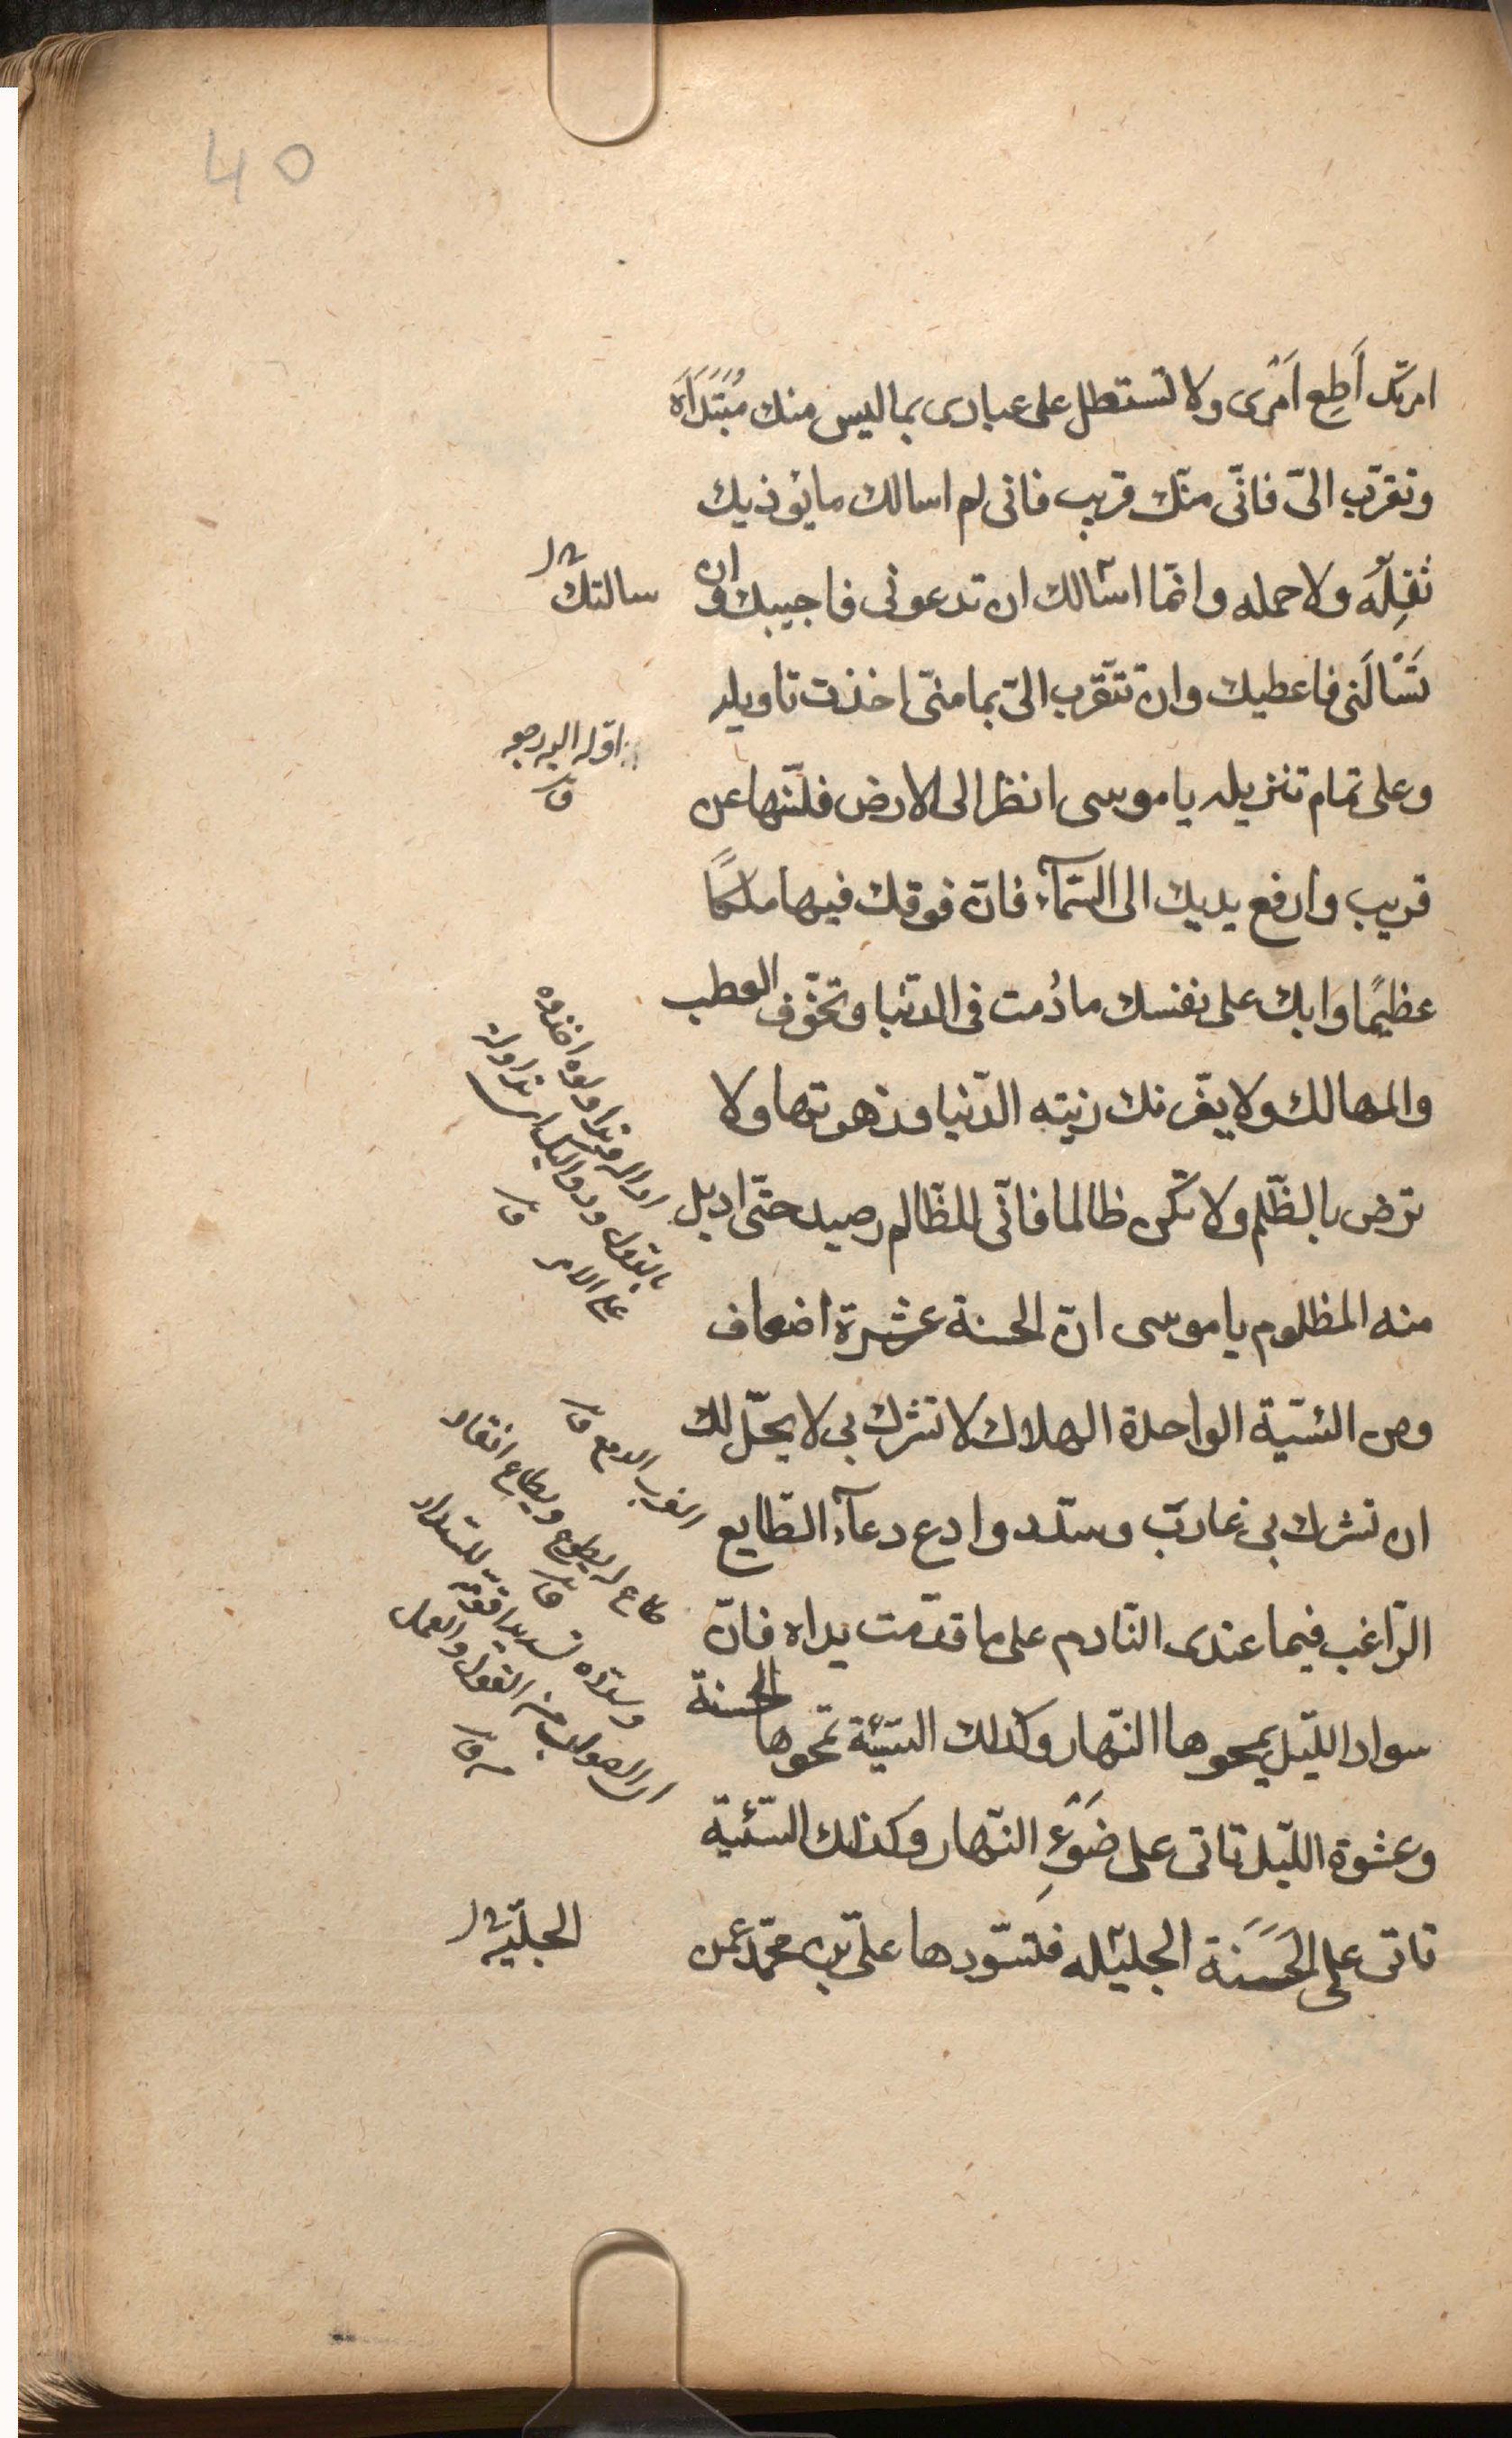 40
امرتك أَطِع أَمْرى ولا تستطل على عبادى بما ليس منك مُبْتَدَاَه
وتقرّب الىّ فانّى منّك قريب فانى لم اسالك ما يؤذيك
ثقِلُه ولا حمله وانمّا اسّالك ان تدعونى فاجيبك وان
سالتك
تَسْالَنى فاعطيك وان تتقّرب الىّ بما منىّ اخذت تاويله
وعلى تمام تنزيله يا موسى انظر الى الارض فلنّها عن
قريب وارفع يديك الى السّمآء فانّ فوقك فيها ملكًا
عظيمًا وابك على نفسك ما دُمت فى الدنيا وتخوّف العطب
والمهالك ولا يغّرنك زينه الدّنيا وزهوتها ولا
ترض بالظّلم ولا تكن ظالما فانّى للظّالم رصيد حتّى اديل
منه المظلوم يا موسى انّ الحسنة عشرة اضعاف
ومن السّيّئة الواحدة الهلاك لا تشرك بى لا يحلّ لك
ان تشرك بى غارب وسدّد وادع دعآء الطّايع
الرّاغب فيما عندى النّادم على ما قدّمت يداه فانّ
سواد اللّيل يمحوها النّهار وكذلك السّيّئة تمحوها الحسنة
وعشوة اللّيل تاتى على ضَوْءِ النّهار وكذلك السّيّئة
تاتى على الحَسَنَة الجليله فتسّودها علىّ بن محمّد عمن
الجليّة
الغرب الدمع
طاع يطوع ويطاع انقاد
وسدّده تسديدا قوّمه
الصواب من القول والعمل